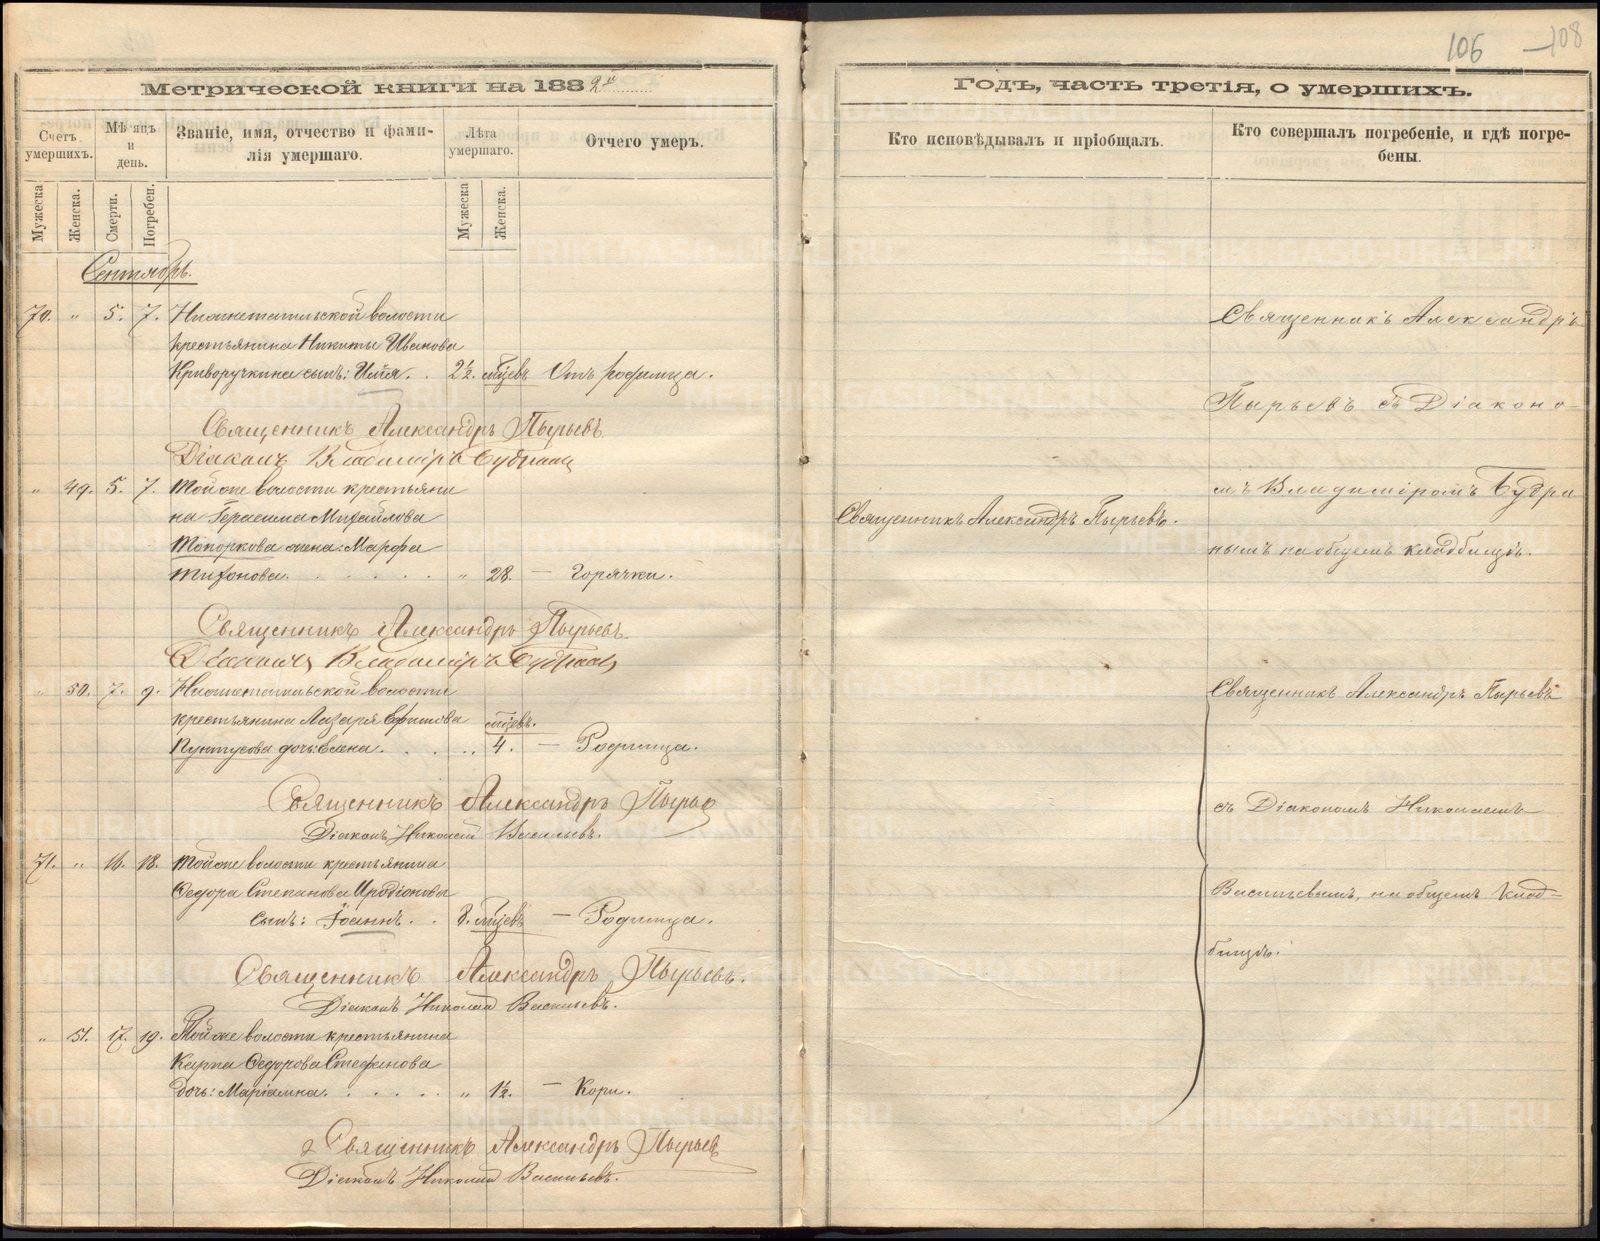 106 108
Метрической книги на 1882й
Счетъ умершихъ.
Мѣсяцъ и день.
Званіе, имя, отчество и фами-
лія умершаго.
Лѣта умершаго.
Отчего умеръ.
Мужеска
Женска.
Смерти.
Погребен.
Мужеска
Женска.
Сентябрь.
70. " 5. 7. Нижнетагильской волости
крестьянина Никиты Иванова
Криворучкина сынъ: Илія. . 2½ мѣсѣвъ Отъ родимца.
Священникъ Александръ Пырьевъ.
Діаконъ Владиміръ Будринъ
" 49. 5. 7. Той же волости крестьяни
на Герасима Михайлова
Топоркова жена: Марфа
Тихонова. " 28. — Горячки.
Священникъ Александръ Пырьевъ.
Діаконъ Владиміръ Будринъ
" 50. 7. 9. Нижнетагильской волости
крестьянина Лазаря Ефимова мѣсѣвъ.
Пунтусова дочь: Елена. " 4. — Родимца.
Священникъ Александръ Пырьевъ
Діаконъ Николай Васильевъ.
71. " 16. 18. Той же волости крестьянина
Федора Степанова Иродіонова
сынъ: Іоаннъ. . 8. мѣсѣвъ — Родимца.
Священникъ Александръ Пырьевъ.
Діаконъ Николай Васильевъ.
" 51. 17. 19. Той же волости крестьянина
Карпа Федорова Стефанова
дочь: Маріамна. " 1½. — Кори.
Священникъ Александръ Пырьевъ
Діаконъ Николай Васильевъ.
Годъ, часть третія, о умершихъ.
Кто исповѣдывалъ и пріобщалъ.
Кто совершалъ погребеніе, и гдѣ погре-
бены.
Священникъ Александръ
Пырьевъ съ Діаконо-
мъ Владиміромъ Будри
Священникъ Александръ Пырьевъ.
нымъ на общемъ кладбищѣ.
Священникъ Александръ Пырьевъ
съ Діакономъ Николаемъ
Васильевымъ, на общемъ клад=
бищѣ.
METRIKI.GASO-URAL.RU